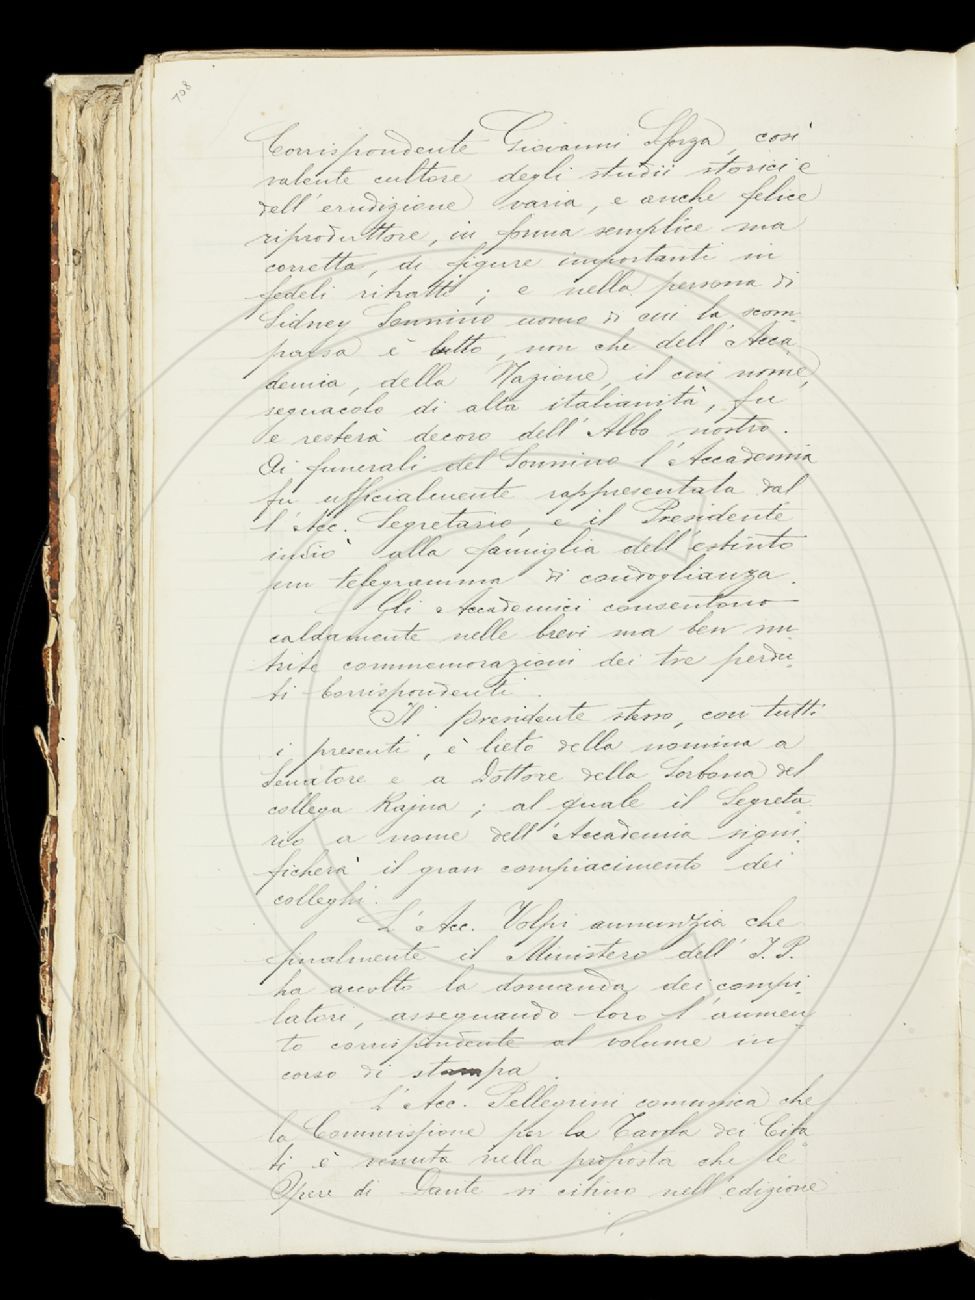 708
Corrispondente Giovanni Sforza, così
valente cultore degli studii storici e
dell'erudizione varia, e anche felice
riproduttore, in forma semplice ma
corretta, di figure importanti in
fedeli ritratti; e nella persona di
Sidney Sonnino uomo di cui la scom-
parsa è lutto, non che dell'Acca
demia, della Nazione, il cui nome,
segnacolo di alta italianità, fu
e resterà decoro dell'Albo nostro.
Ai funerali del Sonnino l'Accademia
fu ufficialmente rappresentata dal
l'Acc. Segretario, e il Presidente
inviò alla famiglia dell'estinto
un telegramma di condoglianza.
Gli Accademici consentono
caldamente nelle brevi ma ben nu-
trite commemorazioni dei tre perdu-
ti Corrispondenti.
Il presidente stesso, con tutti
i presenti, è lieto della nomina a
Senatore e a Dottore della Sorbona del
collega Rajna; al quale il Segreta-
rio a nome dell'Accademia signi-
ficherà il gran compiacimento dei
colleghi.
L'Acc. Volpi annunzia che
finalmente il Ministero dell'I.P.
ha accolto la domanda dei compi-
latori, assegnando loro l'aumen-
to corrispondente al volume in
corso di stampa.
L'Acc. Pellegrini comunica che
la Commissione per la Tavola dei Cita-
ti è venuta nella proposta che le
Opere di Dante si citino nell'edizione